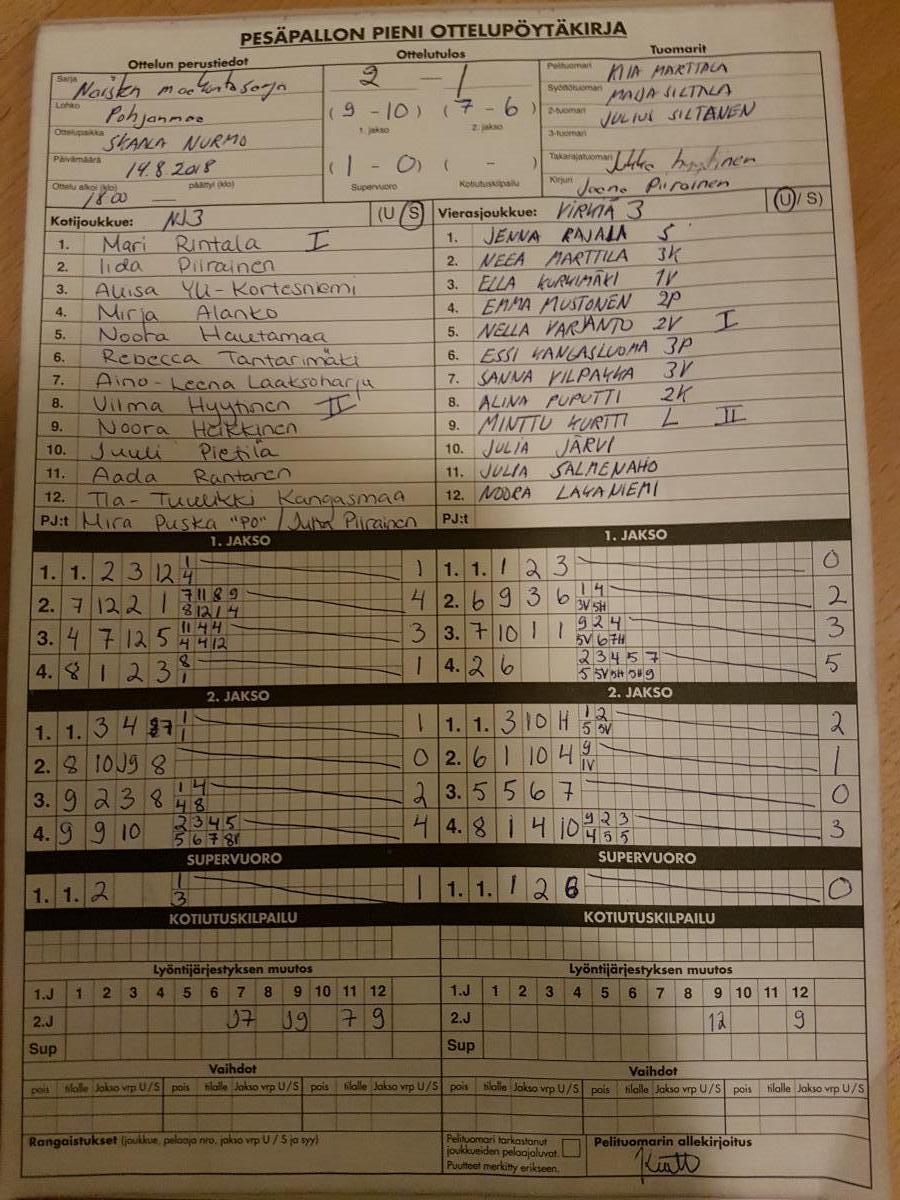 PESÄPALLON PIENI OTTELUPÖYTÄKIRJA
Ottelun perustiedot Ottelutulos Tuomarit
Sarja Naisten maakuntasarja 2 — 1 Pelituomari KIIA MARTTALA
Lohko Pohjanmaa (9 - 10) (7 - 6) Syöttötuomari MAIJA SILTALA
1. jakso 2. jakso 2-tuomari JULIUS SILTANEN
Ottelupaikka SKAALA NURMO 3-tuomari
Päivämäärä 14.8.2018 (1 - 0) ( - ) Takarajatuomari Jukka Hyytinen
Ottelu alkoi (klo) 18 00 päättyi (klo) — Supervuoro Kotiutuskilpailu Kirjuri Jaana Piirainen
Kotijoukkue: NJ3 (U/S) Vierasjoukkue: VIRKIÄ 3 (U/S)
1. Mari Rintala I 1. JENNA RAJALA S
2. Iida Piirainen 2. NEEA MARTTILA 3K
3. Aliisa Yli-Kortesniemi 3. ELLA KURKIMÄKI 1V
4. Mirja Alanko 4. EMMA MUSTONEN 2P
5. Noora Hautamaa 5. NELLA VARJANTO 2V I
6. Rebecca Tantarimäki 6. ESSI KANGASLUOMA 3P
7. Aino-Leena Laaksoharju 7. SANNA VILPAKKA 3V
8. Vilma Hyytinen II 8. ALINA PUPUTTI 2K
9. Noora Heikkinen 9. MINTTU KURTTI L II
10. Juuli Pietilä 10. JULIA JÄRVI
11. Aada Rantanen 11. JULIA SALMENAHO
12. Tia-Tuulikki Kangasmaa 12. NOORA LAKANIEMI
PJ:t Mira Puska "PO" / Jutta Piirainen PJ:t
1. JAKSO 1. JAKSO
1. 1. 2 3 12 1 1 1. 1. 1 2 3 0
4
2. 7 12 2 1 7 11 8 9 4 2. 6 9 3 6 1 4 2
8 12 1 4 3V 5H
3. 4 7 12 5 11 4 4 3 3. 7 10 1 1 9 2 4 3
4 4 12 5V 6 7H
4. 8 1 2 3 8 1 4. 2 6 2 3 4 5 7 5
1 5 5V 5H 5H 9
2. JAKSO 2. JAKSO
1. 1. 3 4 7 1 1 1. 1. 3 10 11 1 2 2
1 5 5V
2. 8 10 J9 8 0 2. 6 1 10 4 9 1
1V
3. 9 2 3 8 1 4 2 3. 5 5 6 7 0
4 8
4. 9 9 10 2 3 4 5 4 4. 8 1 4 10 9 2 3 3
5 6 7 8V 4 5 5
SUPERVUORO SUPERVUORO
1. 1. 2 1 1 1. 1. 1 2 6 0
3
KOTIUTUSKILPAILU KOTIUTUSKILPAILU
Lyöntijärjestyksen muutos Lyöntijärjestyksen muutos
1.J 1 2 3 4 5 6 7 8 9 10 11 12 1.J 1 2 3 4 5 6 7 8 9 10 11 12
2.J J7 J9 7 9 2.J 12 9
Sup Sup
Vaihdot Vaihdot
pois tilalle Jakso vrp U/S pois tilalle Jakso vrp U/S pois tilalle Jakso vrp U/S pois tilalle Jakso vrp U/S pois tilalle Jakso vrp U/S pois tilalle Jakso vrp U/S
Rangaistukset (joukkue, pelaaja nro, jakso vrp U / S ja syy) Pelituomari tarkastanut Pelituomarin allekirjoitus
joukkueiden pelaajaluvat.
Puutteet merkitty erikseen.